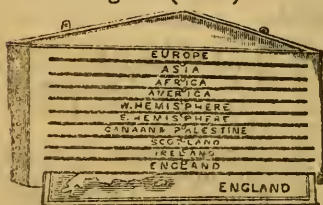 EUROPE
ASIA
AFRICA
AMERICA
W. HEMISPHERE
E. HEMISPHERE
CANAAN & PALESTINE
SCOTLAND
IRELAND
ENGLAND
ENGLAND